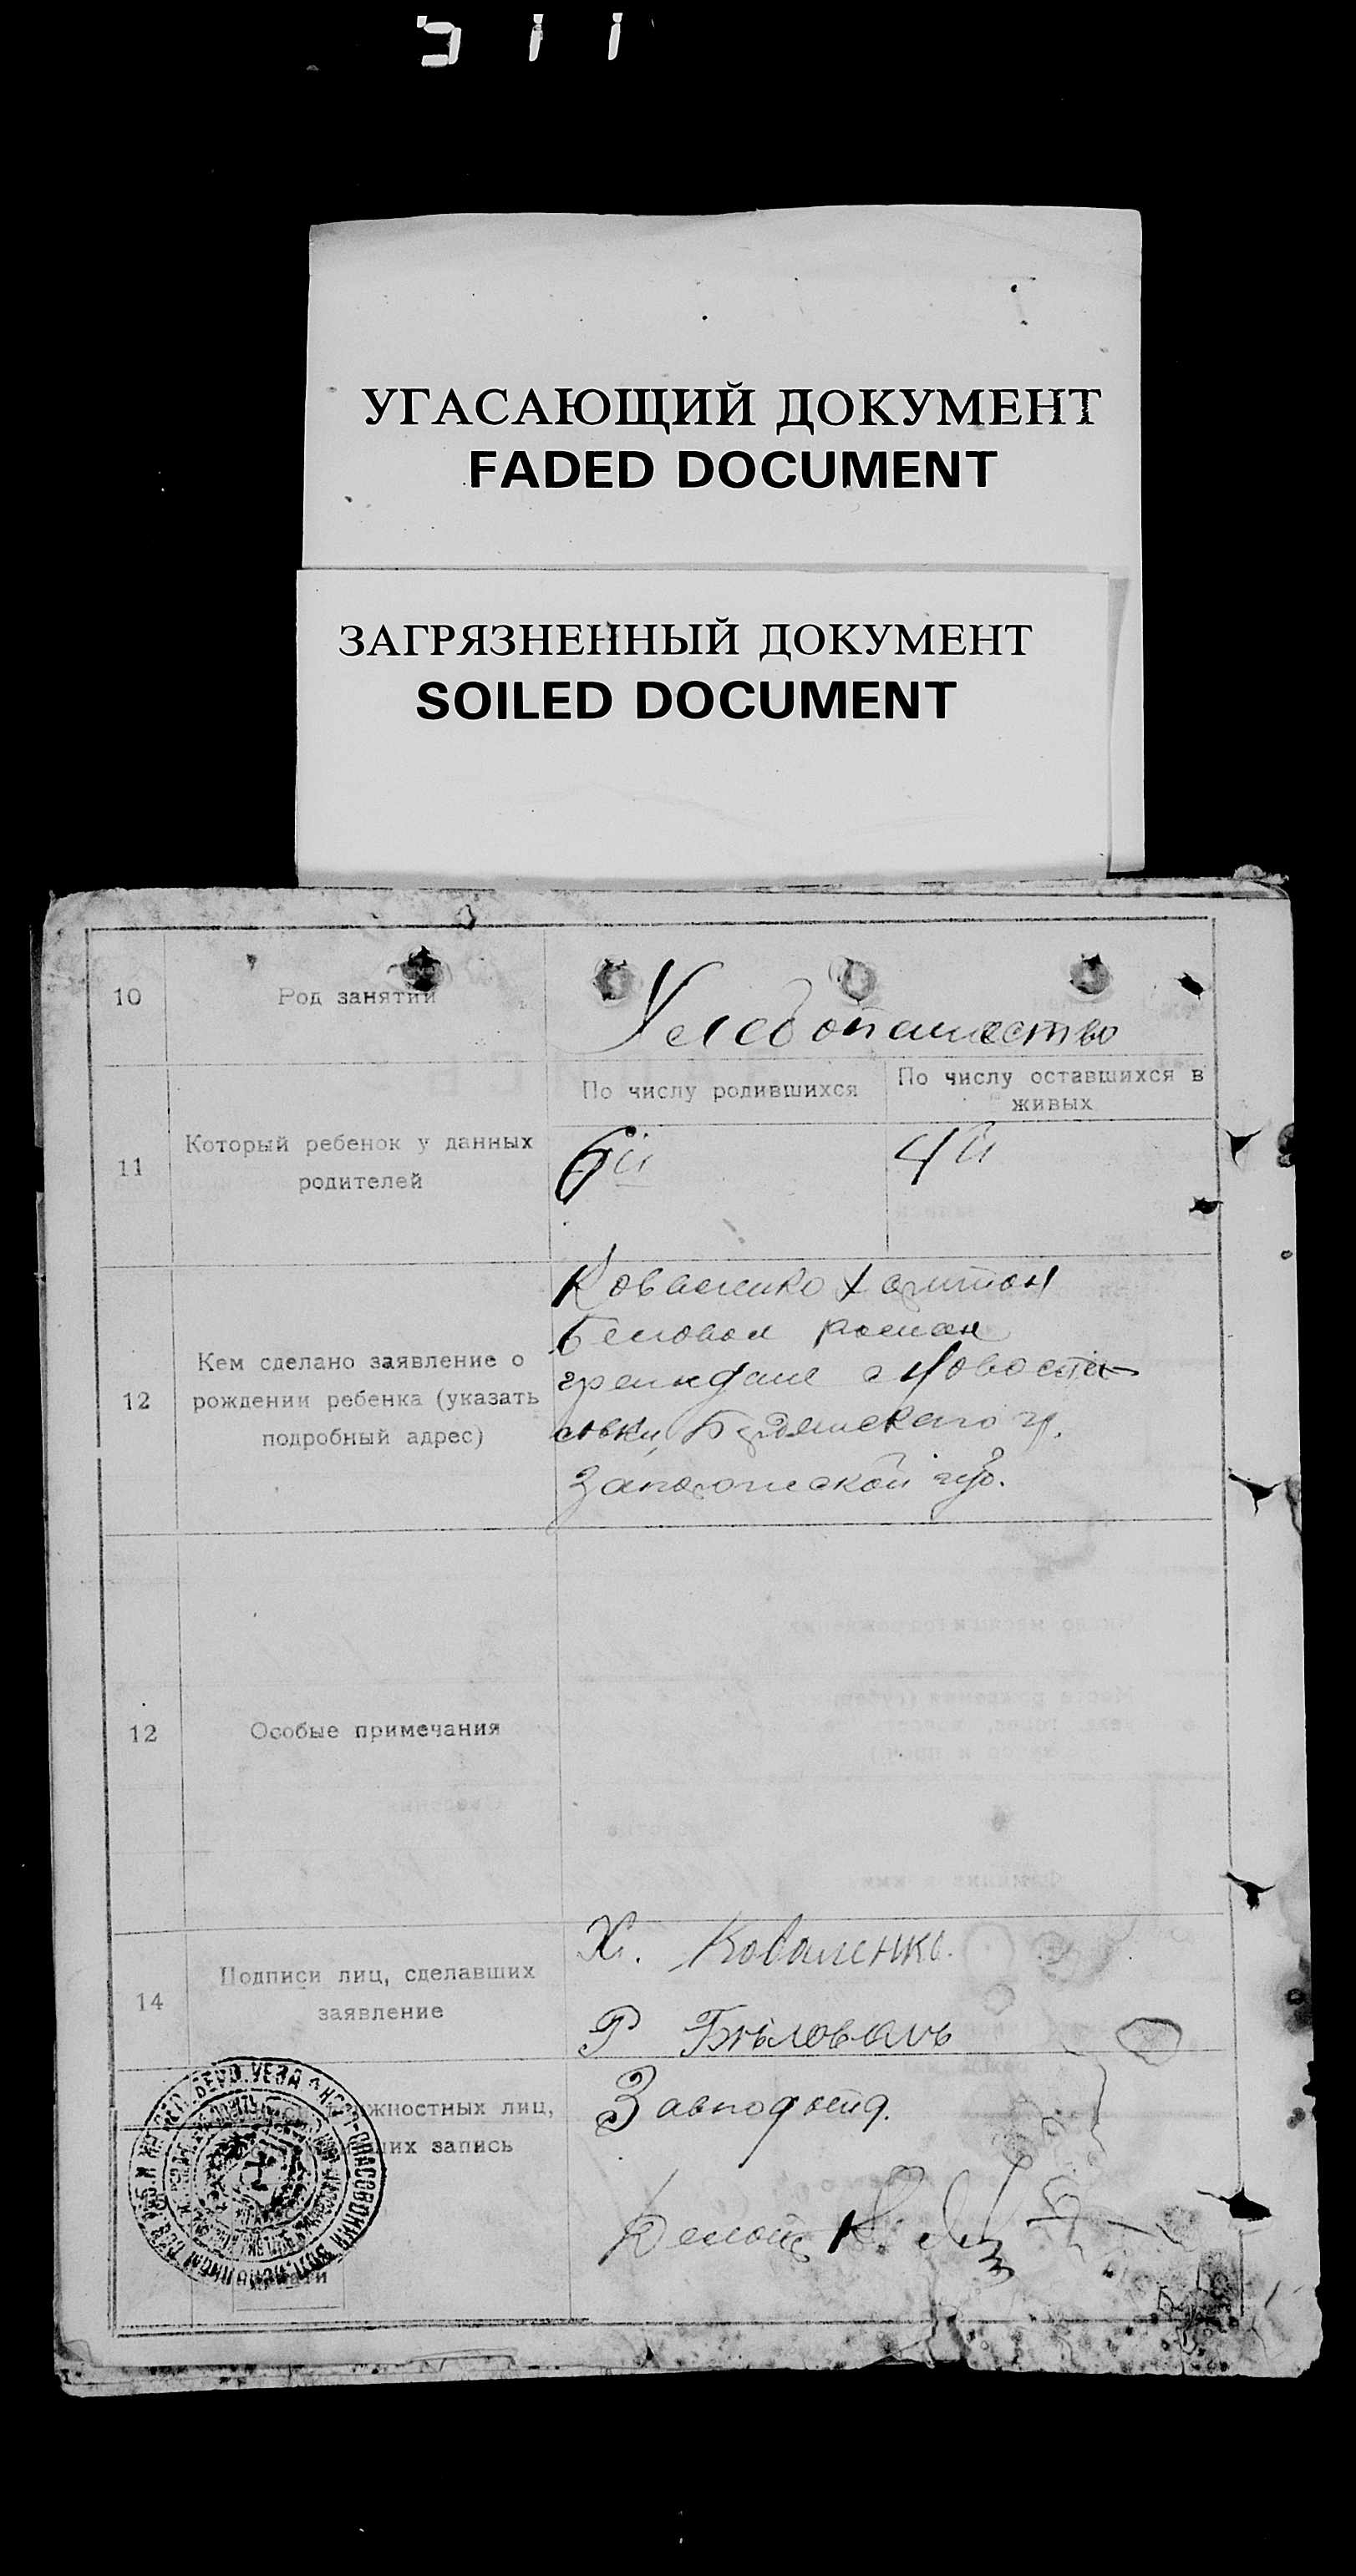 511
УГАСАЮЩИЙ ДОКУМЕНТ
FADED DOCUMENT
ЗАГРЯЗНЕННЫЙ ДОКУМЕНТ
SOILED DOCUMENT
10
Род занятий
Хлебопашество
11
Который ребенок у данных
родителей
По числу родившихся
По числу оставшихся в
живых
6й
4й
12
Кем сделано заявление о
рождении ребенка (указать
подробный адрес)
Коваленко Харитон
Беловол Роман
граждане с Новоспа
совки, Бердянского у.
Запорожской губ.
12
Особые примечания
14
Подписи лиц, сделавших
заявление
Х. Коваленко.
Р Бѣловолъ
жностных лиц,
ших запись
Завподотд.
Делопр